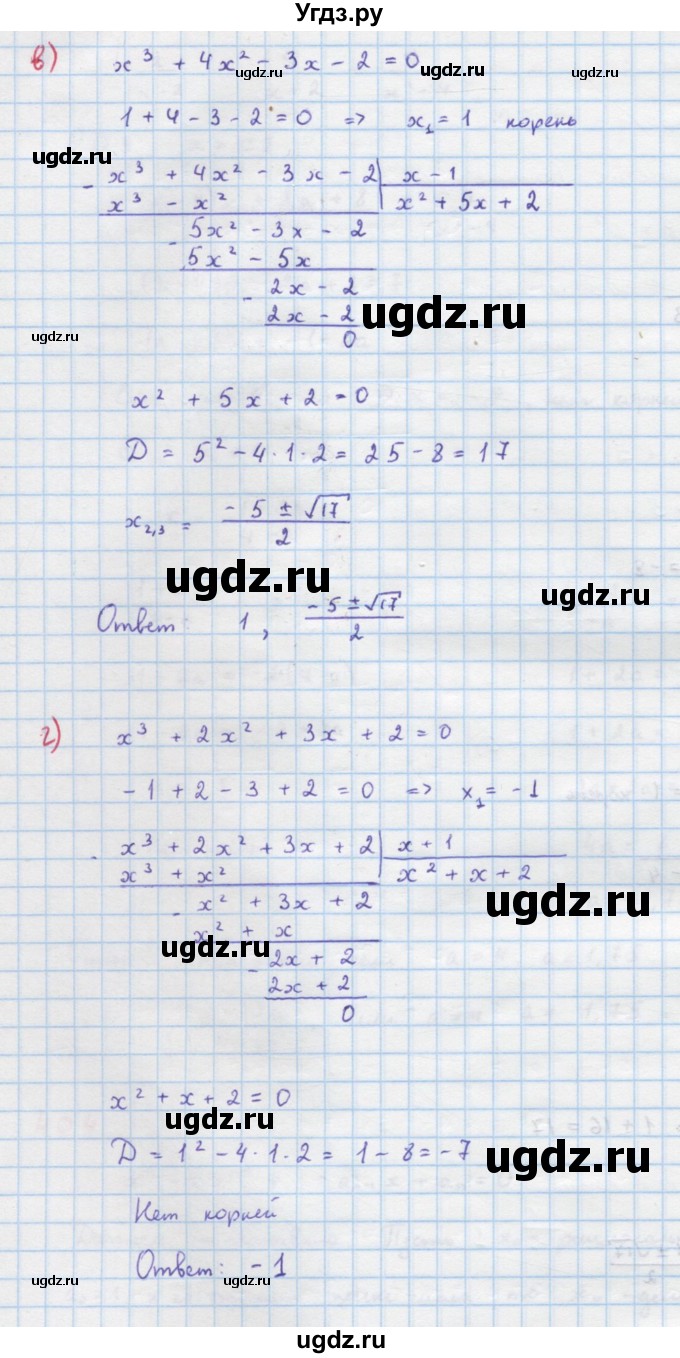 Угдз.ру
в) x³ + 4x² - 3x - 2 = 0
ugdz.ru
ugdz.ru
1 + 4 - 3 - 2 = 0 => x₁ = 1 корень
ugdz.ru
ugdz.ru
- x³ + 4x² - 3x - 2 | x - 1
x³ - x² | x² + 5x + 2
- 5x² - 3x - 2
5x² - 5x
- 2x - 2
2x - 2
ugdz.ru
ugdz.ru
0
x² + 5x + 2 = 0
D = 5² - 4·1·2 = 25 - 8 = 17
x₂,₃ = (-5 ± √17)/2
ugdz.ru
ugdz.ru
Ответ: 1, (-5 ± √17)/2
г) x³ + 2x² + 3x + 2 = 0
-1 + 2 - 3 + 2 = 0 => x₁ = -1
- x³ + 2x² + 3x + 2 | x + 1
x³ + x² | x² + x + 2
- x² + 3x + 2
ugdz.ru
x² + x
ugdz.ru
- 2x + 2
2x + 2
0
x² + x + 2 = 0
ugdz.ru
D = 1² - 4·1·2 = 1 - 8 = -7
ugdz.ru
Нет корней
Ответ: -1
ugdz.ru
ugdz.ru
ugdz.ru